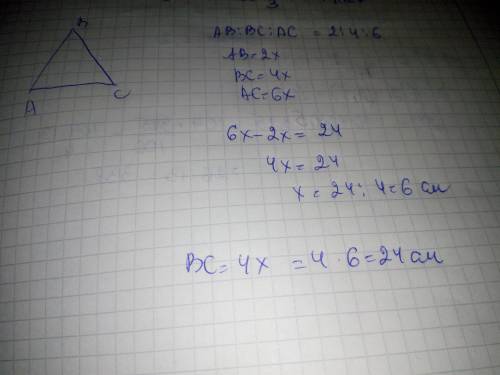 B
A
C
AB:BC:AC = 2:4:6
AB=2x
BC=4x
AC=6x
6x-2x= 24
4x=24
x= 24:4=6 см
BC=4x =4·6=24см